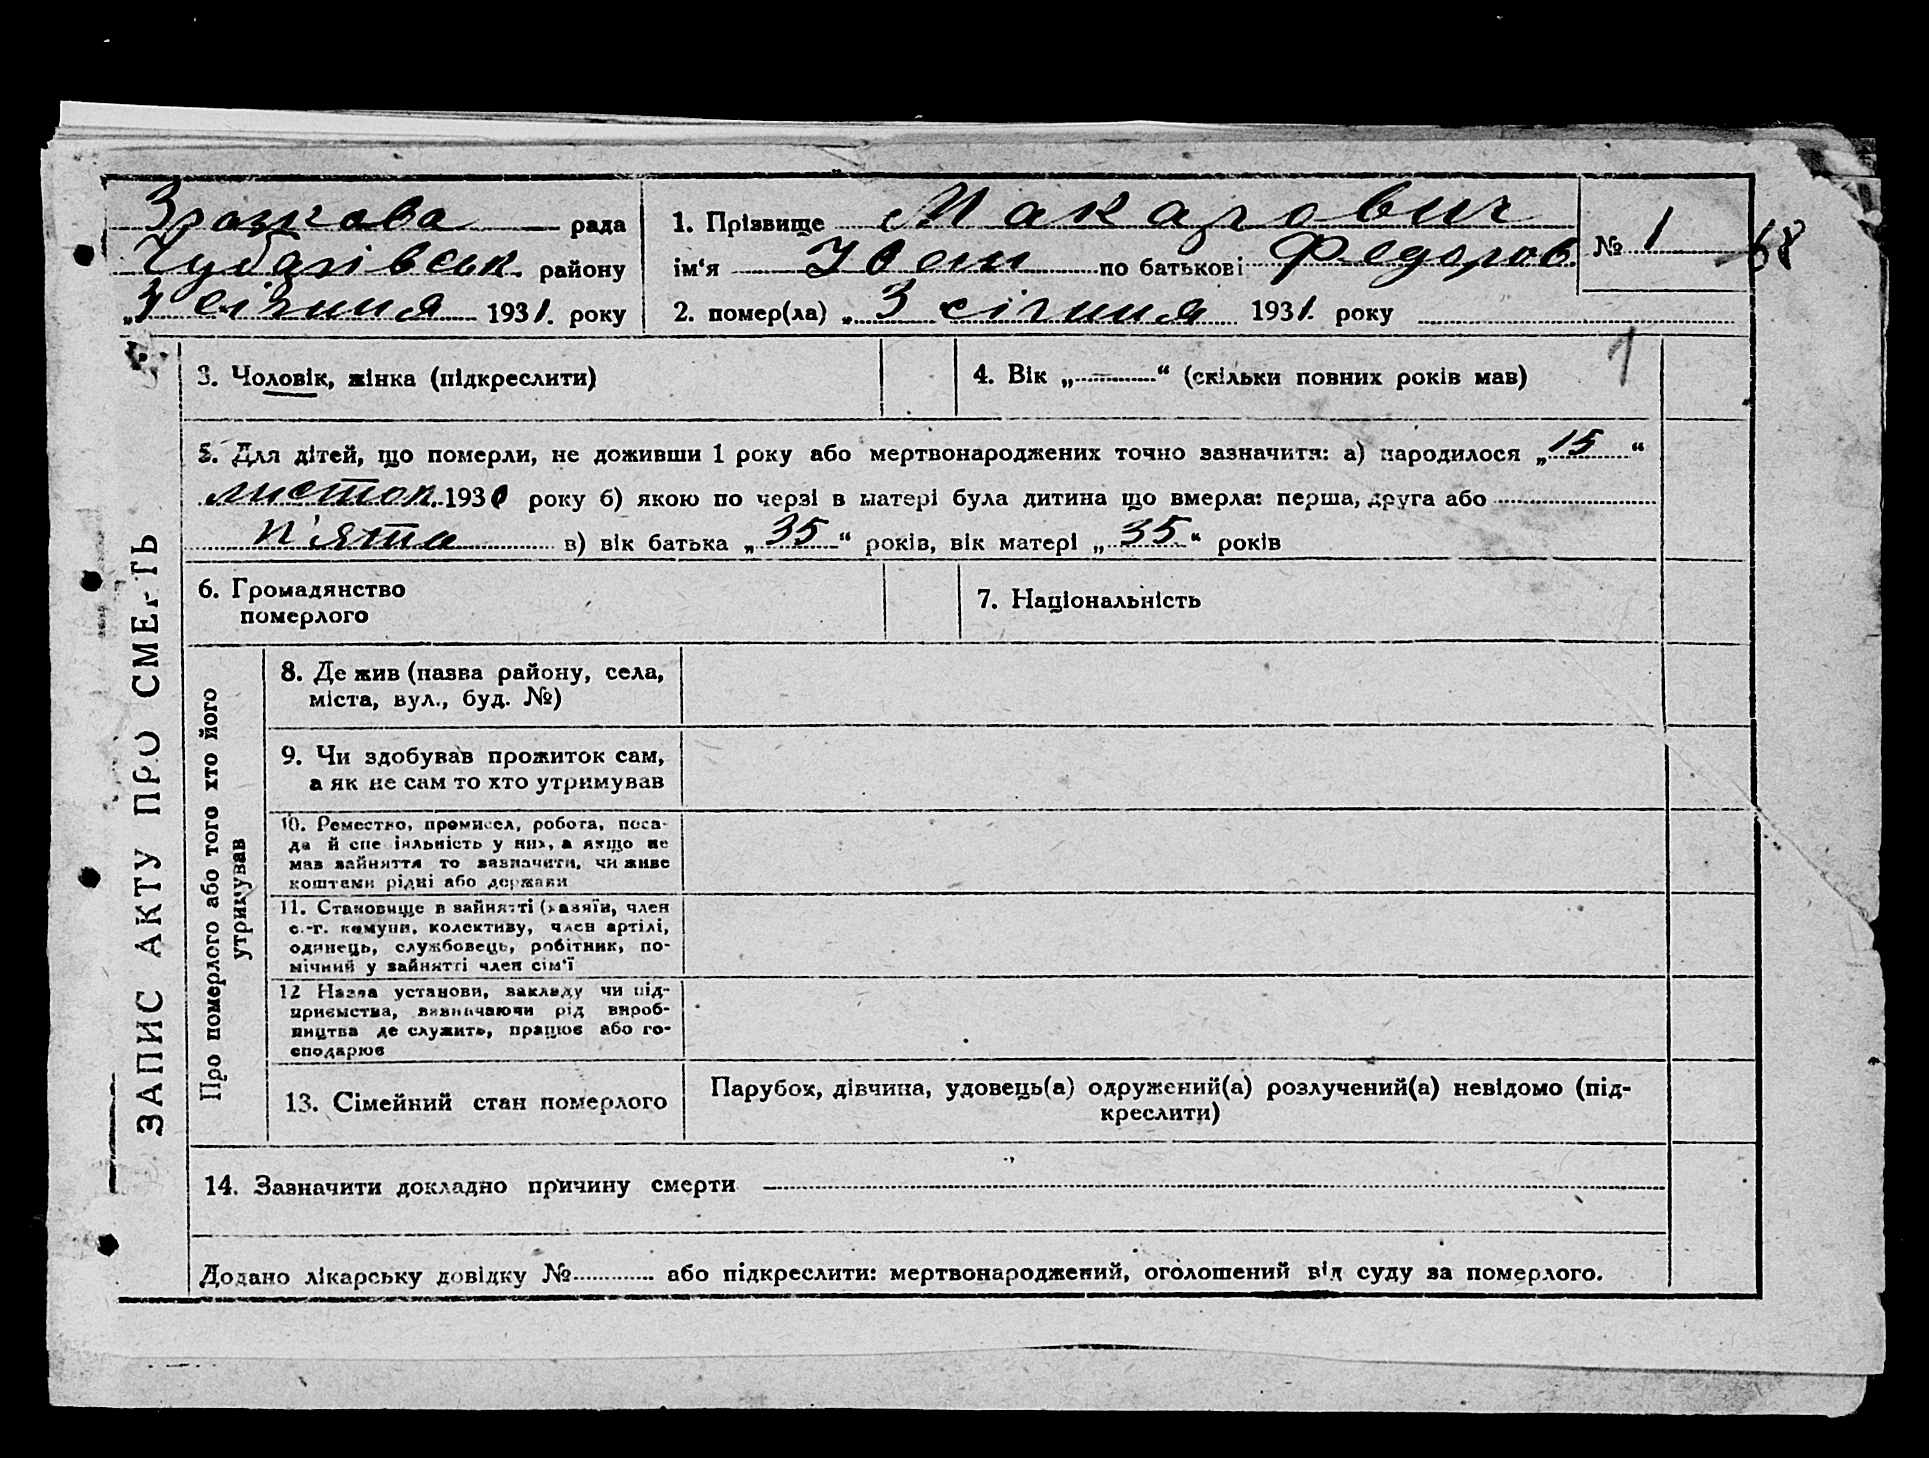 Зразкова рада
Чубарівськ. району
„3 січния 1931. року
1. Прізвище Макарович
ім'я Юхим по батькові Федоров.
2. помер(ла) „ 3 січния 1931. року
№ 1
68
3. Чоловік, жінка (підкреслити)
4. Вік „ — “ (скільки повних років мав)
1
5. Для дітей, що померли, не доживши 1 року або мертвонароджених точно зазначити: а) народилося „ 15 “
листоп. 1930 року б) якою по черзі в матері була дитина що вмерла: перша, друга або
п'ята в) вік батька „ 35 “ років, вік матері „ 35 “ років
6. Громадянство
померлого
7. Національність
ЗАПИС АКТУ ПРО СМЕРТЬ
Про померлого або того хто його
утримував
8. Де жив (назва району, села,
міста, вул., буд. №)
9. Чи здобував прожиток сам,
а як не сам то хто утримував
10. Ремество, промисел, робота, поса-
да й спеціяльність у них, а якщо не
мав зайняття то зазначити, чи живе
коштами рідні або держави
11. Становище в зайнятті (хазяїн, член
с.-г. комуни, колективу, член артілі,
одинець, службовець, робітник, по-
мічний у зайнятті член сім'ї
12 Назва установи, закладу чи під-
приємства, визначаючи рід вироб-
ництва де служить, працює або го-
сподарює
13. Сімейний стан померлого
Парубок, дівчина, удовець(а) одружений(а) розлучений(а) невідомо (під-
креслити)
14. Зазначити докладно причину смерти
Додано лікарську довідку № або підкреслити: мертвонароджений, оголошений від суду за померлого.